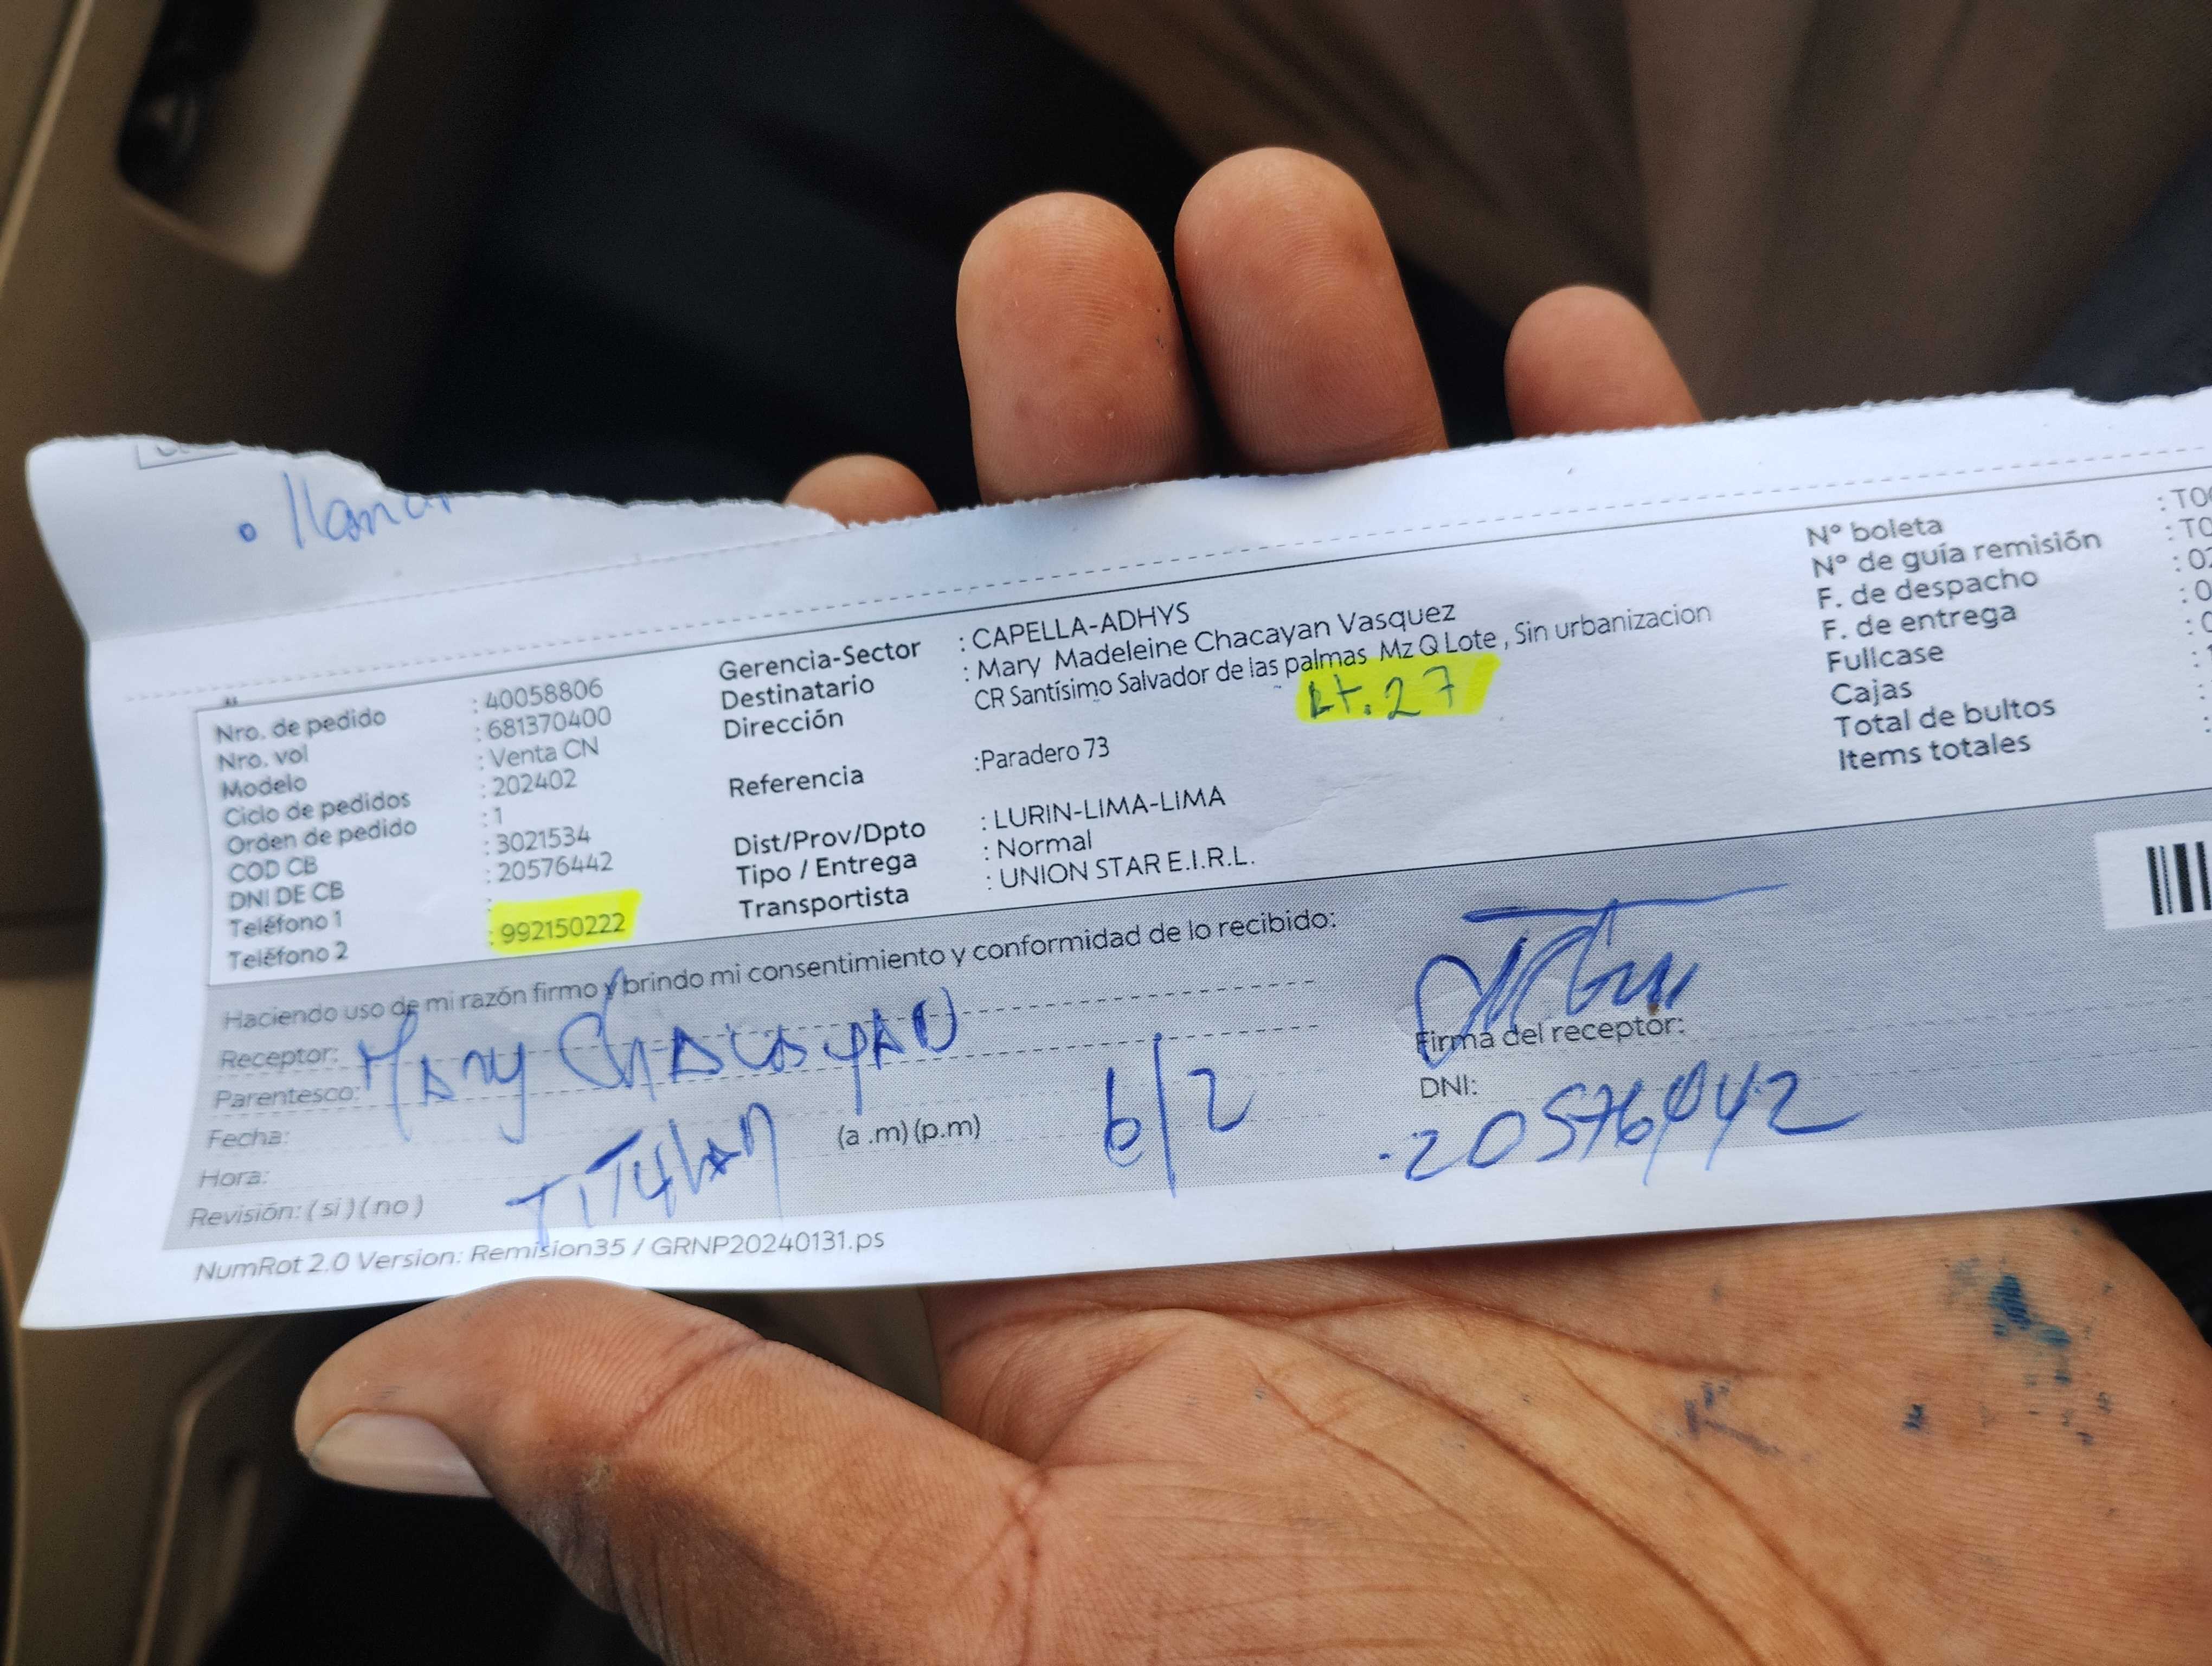 • llamar
Nro. de pedido : 40058806
Nro. vol : 681370400
Modelo : Venta CN
Ciclo de pedidos : 202402
Orden de pedido : 1
COD CB : 3021534
DNI DE CB : 20576442
Teléfono 1 :
Teléfono 2 : 992150222
Gerencia-Sector : CAPELLA-ADHYS
Destinatario : Mary Madeleine Chacayan Vasquez
Dirección CR Santísimo Salvador de las palmas Mz Q Lote , Sin urbanizacion
Lt. 27
Referencia :Paradero 73
Dist/Prov/Dpto : LURIN-LIMA-LIMA
Tipo / Entrega : Normal
Transportista : UNION STAR E.I.R.L.
N° boleta : T0
N° de guía remisión : T0
F. de despacho : 0
F. de entrega : 0
Fullcase :
Cajas :
Total de bultos :
Items totales :
Haciendo uso de mi razón firmo y brindo mi consentimiento y conformidad de lo recibido:
Receptor: MARY CHACAYAN
Parentesco: TITULAR
Fecha: 6/2
Hora: (a .m) (p.m)
Revisión: ( si ) ( no )
Firma del receptor:
DNI: 20576442
NumRot 2.0 Version: Remision35 / GRNP20240131.ps